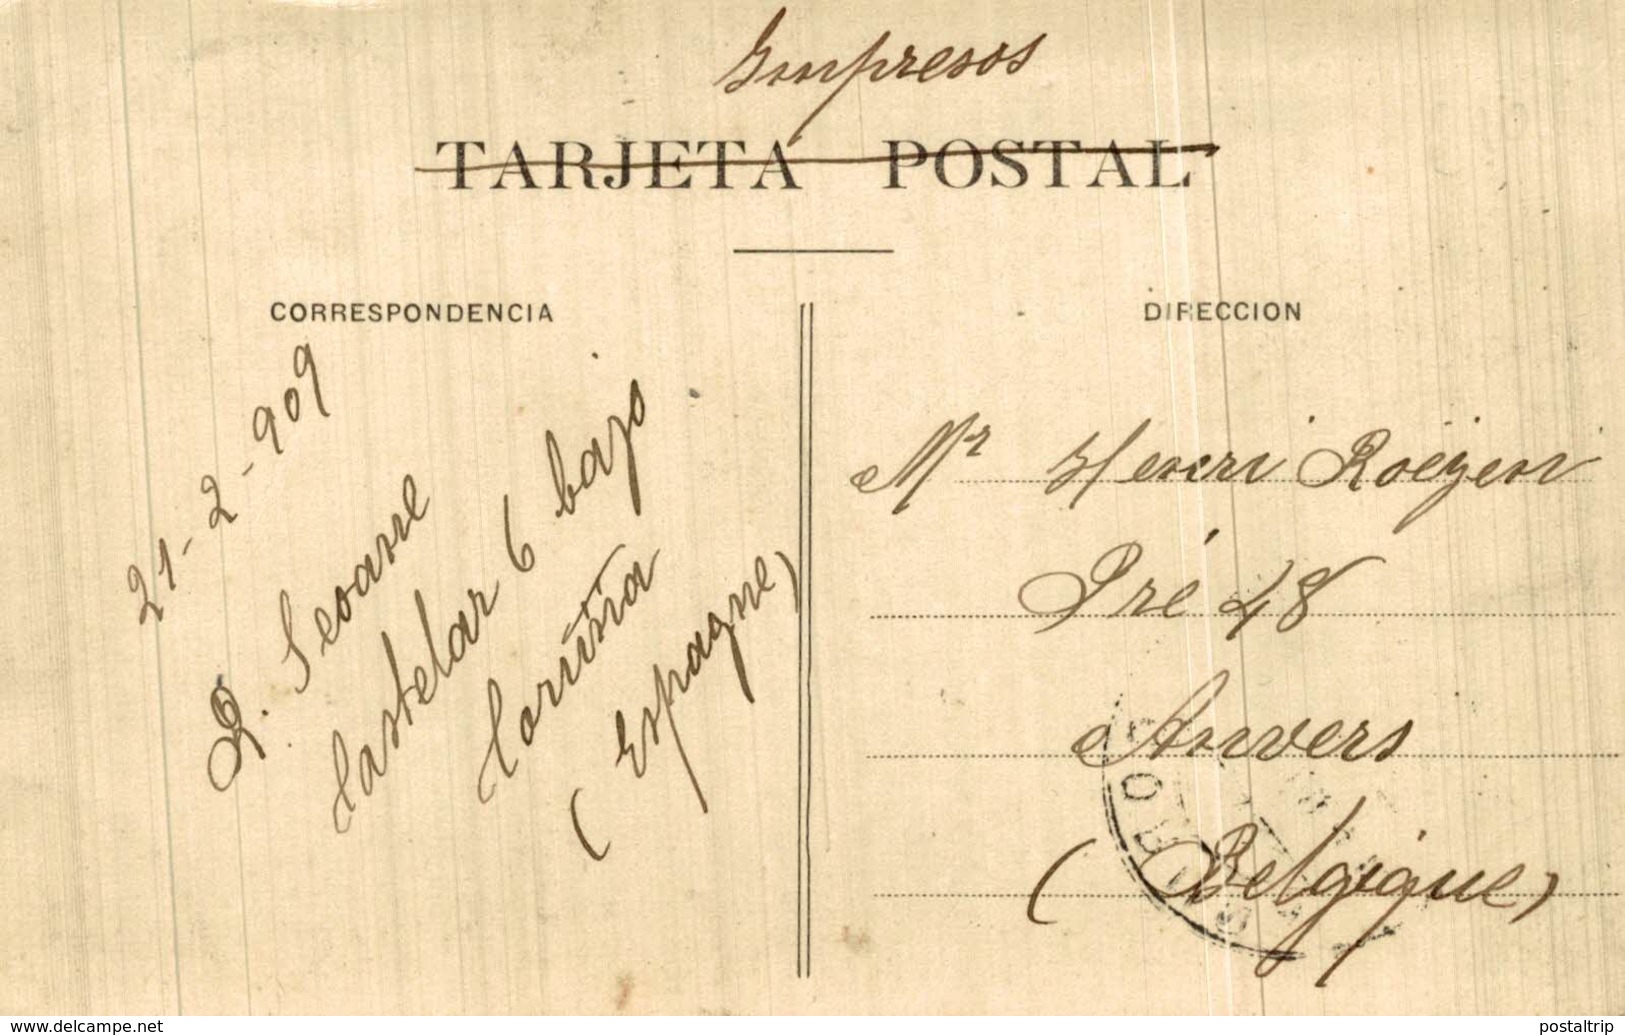 Impresos
TARJETA POSTAL
CORRESPONDENCIA
21-2-909
R. Seoane
Castelar 6 bajo
Coruña
(Espagne)
DIRECCION
Mr Henri Roeyen
Pré 48
Anvers
(Belgique)
www.delcampe.net
postaltrip